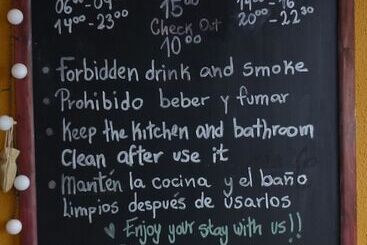 15°°
14°° - 23°°
20°° - 22³⁰
Check Out
10°°
• Forbidden drink and smoke
• Prohibido beber y fumar
• Keep the kitchen and bathroom
Clean after use it
• Mantén la cocina y el baño
Limpios después de usarlos
♥ Enjoy your stay with us!!